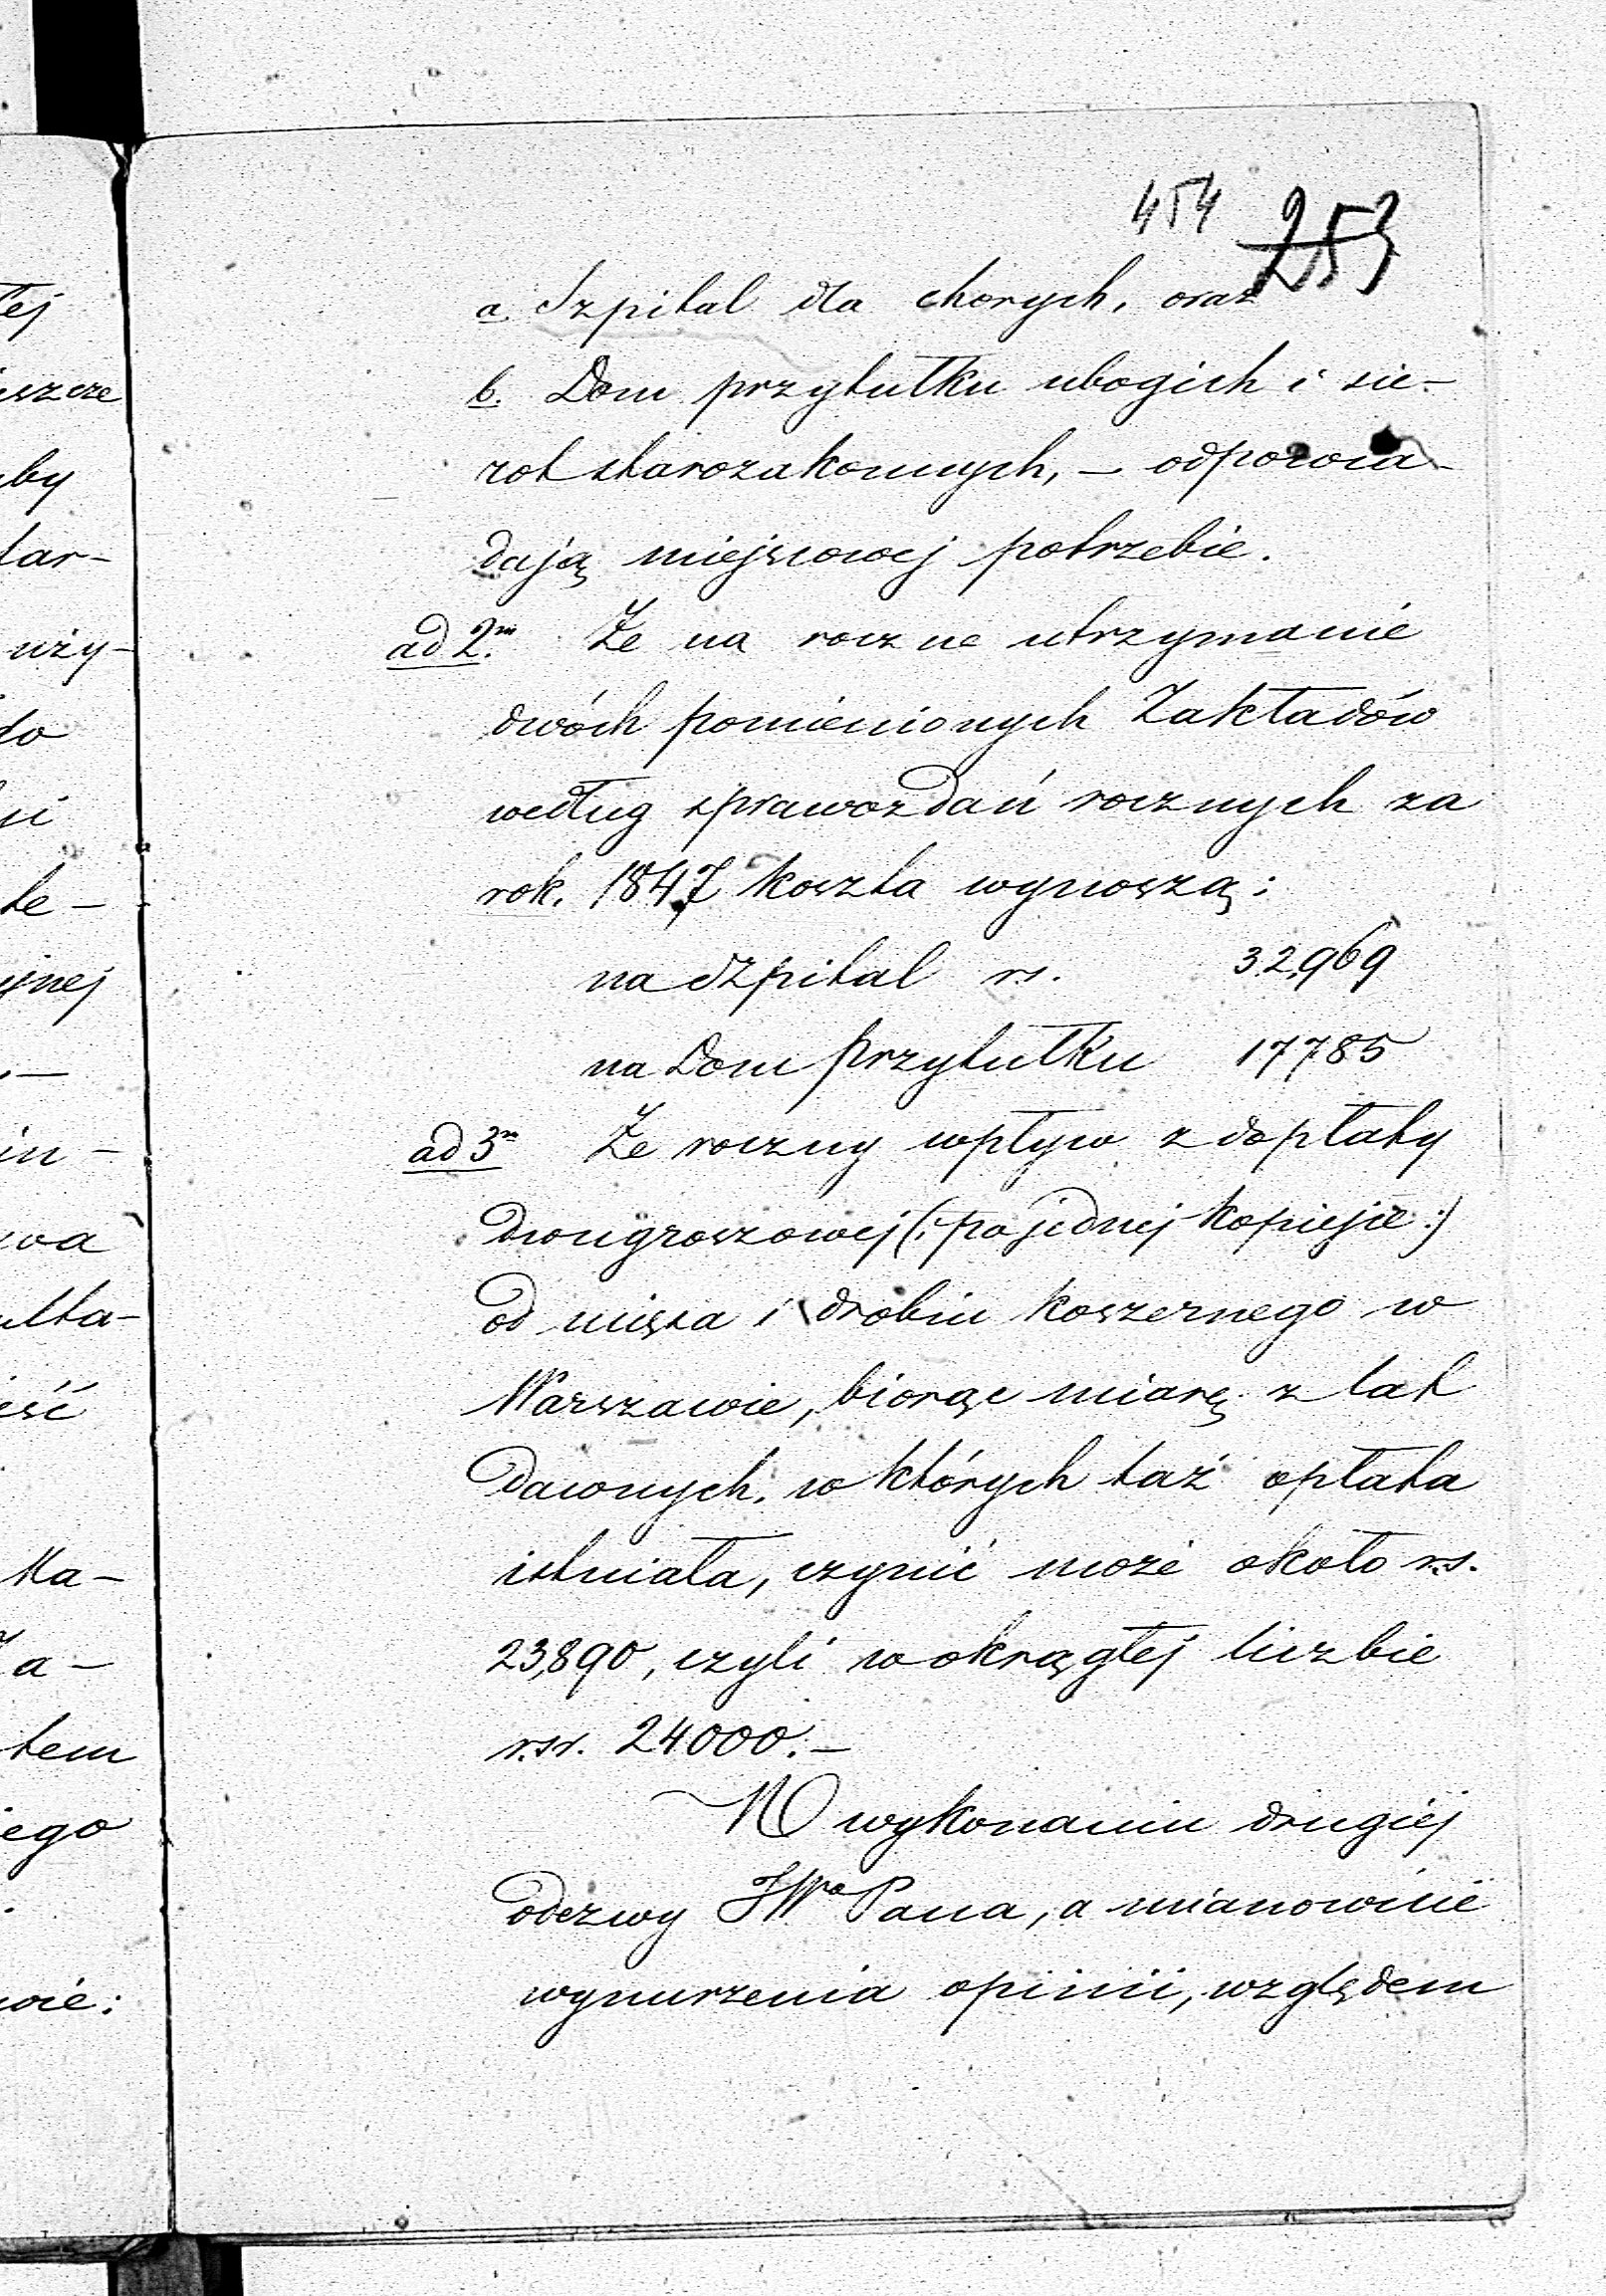 454 253
a. Szpital dla chorych, oraz
b. Dom przytułku ubogich i sie-
rot starozakonnych, – odpowia-
dają miejscowej potrzebie.
ad 2.m Że na roczne utrzymanie
dwóch pomienionych Zakładów
według sprawozdań rocznych za
rok. 1847 koszta wynoszą:
na Szpital rs. 32,969
na Dom przytułku 17785
ad 3m Że roczny wpływ z dopłaty
dwugroszowej (: po jednej kopiejce :)
od mięsa i drobiu koszernego w
Warszawie, biorąc miarę z lat
dawnych, w których taż opłata
istniała, czynić może około rs.
23,890, czyli w okrągłej liczbie
rsr. 24000.–
W wykonaniu drugiej
odezwy JWo Pana, a mianowicie
wynurzenia opinii, względem
tej
szcze
by
tar-
uży-
do
te-
yjnej
in-
wa
ulta-
eść
Ma-
a-
tem
iego
wie: